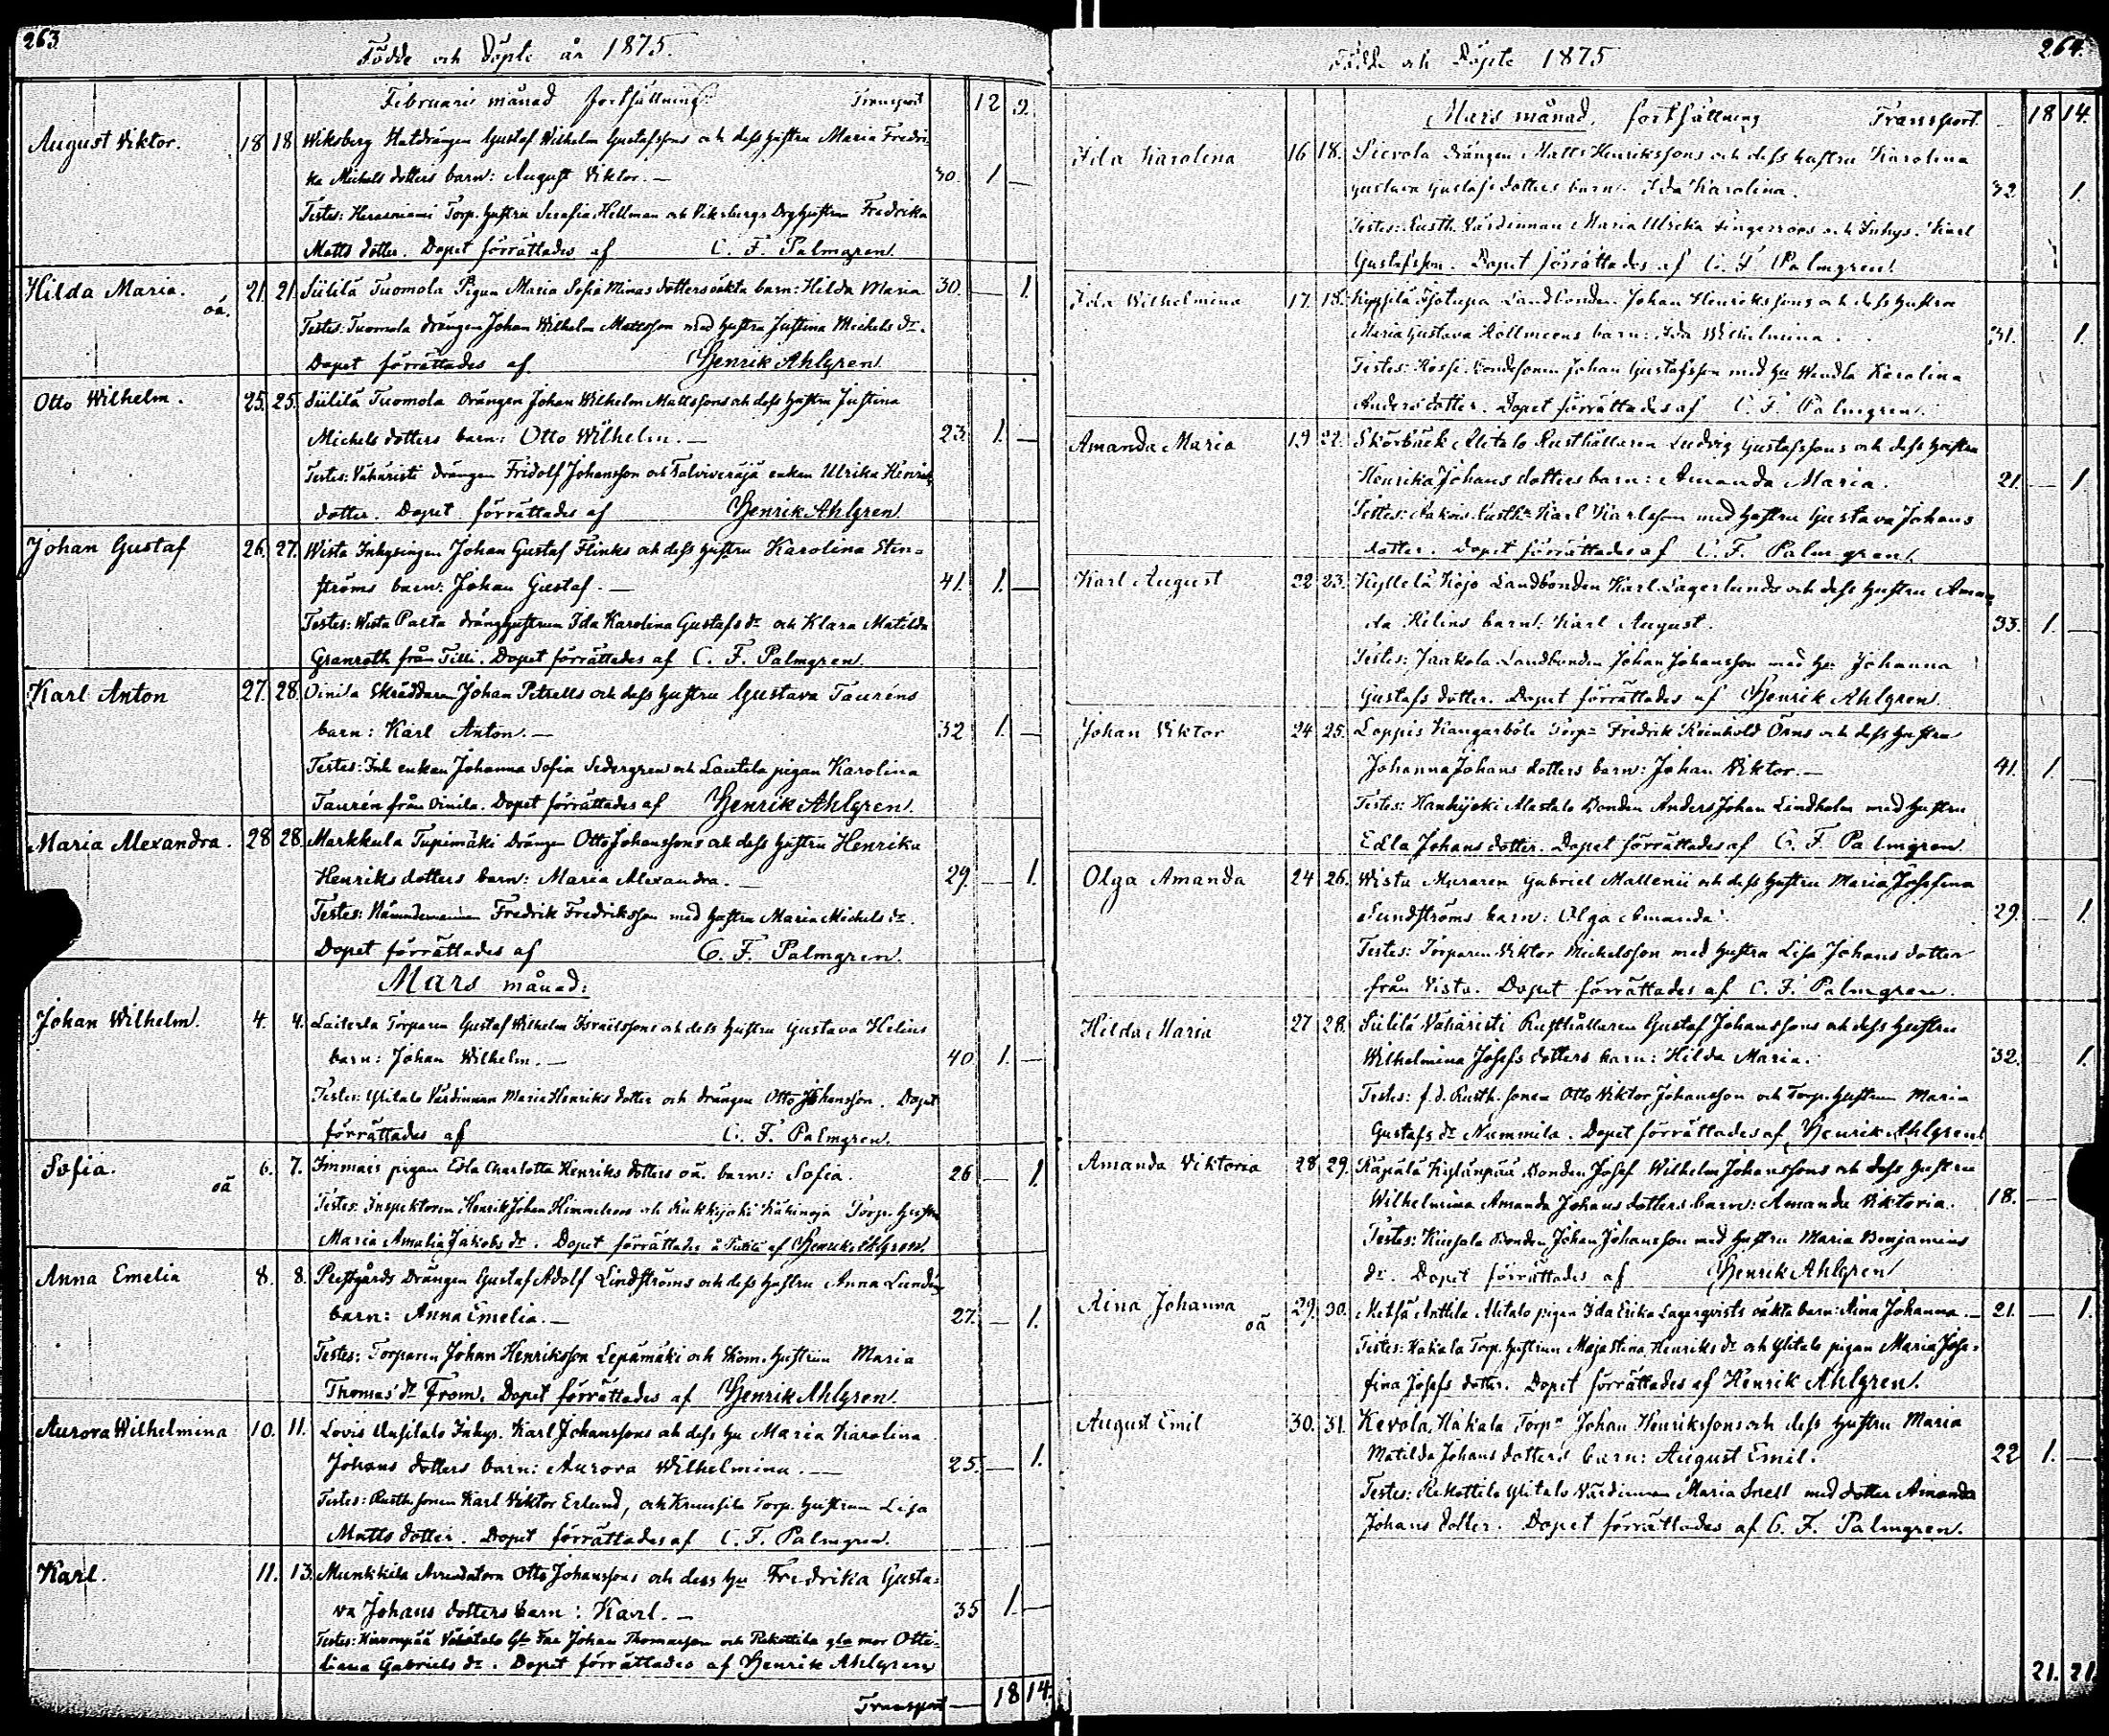 263.
Födde och Döpte år 1875.
Februarii månad fortsättning. Transport 12 9.
August Viktor. 18 18 Wiksberg Statdrängen Gustaf Wilhelm Gustafssons och dess hustru Maria Fredri-
ka Michels dotters barn: August Viktor. — 30. 1 —
Testes: Torp. hustru Serafia Hellman och Viksbergs Drghustrun Fredrika
Matts dotter. Dopet förrättades af C. F. Palmgren.
Hilda Maria. oä. 21. 21. Siililä Tuomola Pigan Maria Sofia Minas dotters oäkta barn: Hilda Maria 30. — 1.
Testes: Tuomola drängen Johan Wilhelm Mattsson med hustru Justina Michels dr.
Dopet förrättades af Henrik Ahlgren.
Otto Wilhelm. 25. 25. Siililä Tuomola Drängen Johan Wilhelm Mattssons och dess hustru Justina
Michels dotters barn: Otto Wilhelm. — 23. 1. —
Testes: Vähäristi Drängen Fridolf Johansson och Talviveräjä enkan Ulrika Henriks
dotter. Dopet förrättades af Henrik Ahlgren.
Johan Gustaf 26. 27. Wista Inhysingen Johan Gustaf Flinks och dess hustru Karolina Sten-
ströms barn: Johan Gustaf. — 41. 1. —
Testes: Wista Paeta dränghustrun Ida Karolina Gustafs dr och Klara Matilda
Granroth från Tilli. Dopet förrättades af C. F. Palmgren.
Karl Anton 27. 28. Oinila Skräddaren Johan Petrells och dess hustru Gustava Tauréns
barn: Karl Anton. — 32 1. —
Testes: Inh enkan Johanna Sofia Sedergren och Lautela pigan Karolina
Taurén från Oinila. Dopet förrättades af Henrik Ahlgren.
Maria Alexandra. 28 28. Markkula Tupimäki Drängen Otto Johanssons och dess hustru Henrika
Henriks dotters barn: Maria Alexandra. — 29. — 1.
Testes: Nämndemannen Fredrik Fredriksson med hustru Maria Michels dr.
Dopet förrättades af C. F. Palmgren.
Mars månad:
Johan Wilhelm. 4. 4. Laiterla Torparen Gustaf Wilhelm Israelssons och dess hustru Gustava Helins
barn: Johan Wilhelm. — 40 1. —
Testes: Ylitalo Värdinnan Maria Henriks dotter och drängen Otto Johansson. Dopet
förrättades af C. F. Palmgren.
Sofia. oä 6. 7. Immais pigan Edla Charlotta Henriks dotters oä. barn: Sofia. 26 — 1.
Testes: Inspektoren Henrik Johan Himmelroos och Kukkijoki Torp. hustru
Maria Amalia Jakobs dr. Dopet förrättades å af Henrik Ahlgren.
Anna Emelia 8. 8. Prestgårds Drängen Gustaf Adolf Lindströms och dess hustru Anna Lundéns
barn: Anna Emelia. — 27. — 1.
Testes: Torparen Johan Henriksson Lepämäki och Skom. hustrun Maria
Thomas dr From. Dopet förrättades af Henrik Ahlgren.
Aurora Wilhelmina 10. 11. Lovis Uusitalo Inhys. Karl Johanssons och dess hu Maria Karolina
Johans dotters barn: Aurora Wilhelmina. — 25. — 1.
Testes: Rusth sonen Karl Viktor Erlund, och Torp. hustrun Lisa
Matts dotter. Dopet förrättades af C. F. Palmgren.
Karl. 11. 13. Munkkila Arrendatorn Otto Johanssons och dess hu Fredrika Gusta-
va Johans dotters barn: Karl. — 35 1. —
Testes: Hirvonpää Johan Thomasson och Rekottila gla mor Otti-
liana Gabriels dr. Dopet förrättades af Henrik Ahlgren
Transport — 18 14.
264.
Födde och Döpte 1875
Mars månad. fortsättning Transport. 18 14.
Ida Karolina 16 18. Sievola drängen Matts Henrikssons och dess hustru Karolina
Gustava Gustafs dotters barn: Ida Karolina. 32 1.
Testes: Rusth. Värdinnan Maria Ulrika Fingerroos och Inhys. Karl
Gustafsson. Dopet förrättades af C. F. Palmgren.
Ida Wilhelmina 17. 18. Landbonden Johan Henrikssons och dess hustru
Maria Gustava Hollmeens barn: Ida Wilhelmina. 31. 1.
Testes: Bondesonen Johan Gustafsson med hu Wendla Karolina
Anders dotter. Dopet förrättades af C. F. Palmgren.
Amanda Maria 19 22. Skörbäck Alitalo Rusthållaren Ludvig Gustafssons och dess hustru
Henrika Johans dotters barn: Amanda Maria. 21. — 1.
Testes: Rusthn Karl Karlsson med hustru Gustava Johans
dotter. Dopet förrättades af C. F. Palmgren.
Karl August 22 23. Kyllelä Kojo Landbonden Karl Lagerlunds och dess hustru Aman-
da Helins barn: Karl August. 33. 1. —
Testes: Jaakola Landbonden Johan Johansson med hu Johanna
Gustafs dotter. Dopet förrättades af Henrik Ahlgren
Johan Viktor 24 25. Loppis Kangarböle Torpn Fredrik Reinhold Örns och dess hustru
Johanna Johans dotters barn: Johan Viktor. — 41. 1 —
Testes: Hanhijoki Alastalo Bonden Anders Johan Lindholm med hustru
Edla Johans dotter. Dopet förrättades af C. F. Palmgren.
Olga Amanda 24 26. Wista Muraren Gabriel Mallenii och dess hustru Maria Josefina
Sundströms barn: Olga Amanda. 29. — 1.
Testes: Torparen Viktor Michelsson med hustru Lisa Johans dotter
från Vista. Dopet förrättades af C. F. Palmgren.
Hilda Maria 27 28. Siililä Vähäristi Rusthållaren Gustaf Johanssons och dess hustru
Wilhelmina Josefs dotters barn: Hilda Maria. 32. — 1.
Testes: f. d. Rusth. sonen Otto Viktor Johansson och Torp. hustrun Maria
Gustafs dr Nummila. Dopet förrättades af Henrik Ahlgren
Amanda Viktoria 28 29. Käpälä Kylänpää Bonden Josef Wilhelm Johanssons och dess hustru
Wilhelmina Amanda Johans dotters barn: Amanda Viktoria. 18. —
Testes: Bonden Johan Johansson med hustru Maria Benjamins
dr. Dopet förrättades af Henrik Ahlgren
Aina Johanna oä 29. 30. Metsä Anttila Alitalo pigan Ida Erika Lagerqvists oäkta barn: Aina Johanna. — 21. — 1.
Testes: Hakala Torp. hustrun Maja Stina Henriks dr och Ylitalo pigan Maria Jose-
fina Josefs dotter. Dopet förrättades af Henrik Ahlgren.
August Emil 30. 31. Kevola Hakala Torpn Johan Henrikssons och dess hustru Maria
Matilda Johans dotters barn: August Emil. 22 1. —
Testes: Rekottila Ylitalo Värdinnan Maria Snell med dotter Amanda
Johans dotter. Dopet förrättades af C. F. Palmgren.
21. 21